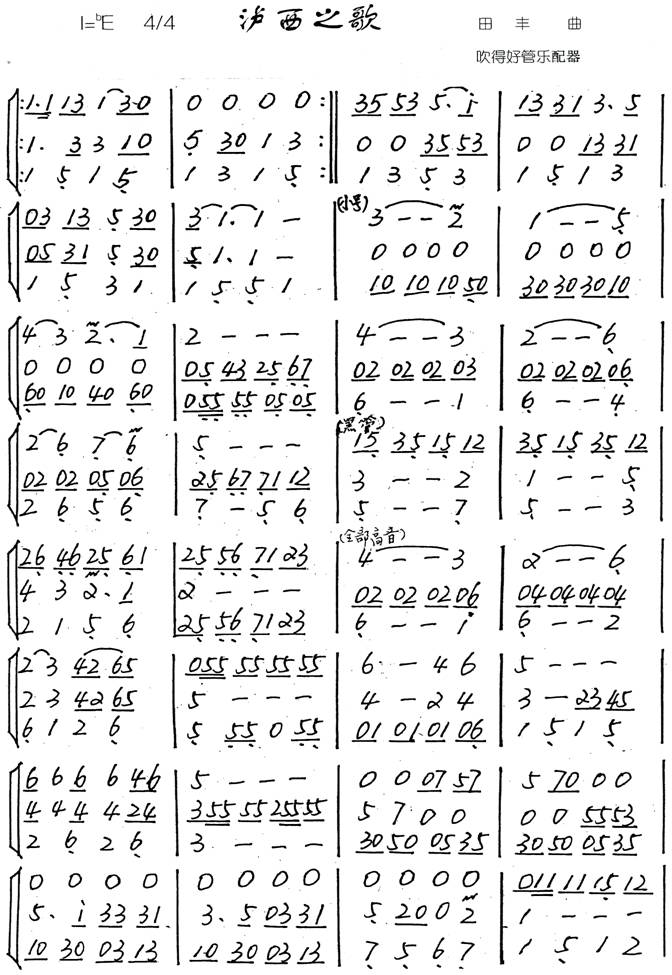 1=ᵇE 4/4 泸西之歌 田丰 曲
吹得好管乐配器
:1.1 13 1 3·0 | 0 0 0 0 :‖ 35 53 5. i | 13 31 3. 5
:1. 3 3 10 | 5 30 1 3 :‖ 0 0 35 53 | 0 0 13 31
:1 5 1 5 | 1 3 1 5 :‖ 1 3 5 3 | 1 5 1 3
(小号)
03 13 5 30 | 3 1. 1 - | 3 - - 2 | 1 - - 5
05 31 5 30 | 5 1. 1 - | 0 0 0 0 | 0 0 0 0
1 5 3 1 | 1 5 5 1 | 10 10 10 50 | 30 30 30 10
4 3 2. 1 | 2 - - - | 4 - - 3 | 2 - - 6
0 0 0 0 | 05 43 25 67 | 02 02 02 03 | 02 02 02 06
60 10 40 60 | 055 55 05 05 | 6 - - 1 | 6 - - 4
(黑管)
2 6 7 6 | 5 - - - | 15 35 15 12 | 35 15 35 12
02 02 05 06 | 25 67 71 12 | 3 - - 2 | 1 - - 5
2 6 5 6 | 7 - 5 6 | 5 - - 7 | 5 - - 3
(全部高音)
26 46 25 61 | 25 56 71 23 | 4 - - 3 | 2 - - 6
4 3 2. 1 | 2 - - - | 02 02 02 06 | 04 04 04 04
2 1 5 6 | 25 56 71 23 | 6 - - i | 6 - - 2
2 3 42 65 | 055 55 55 55 | 6 - 4 6 | 5 - - -
2 3 42 65 | 5 - - - | 4 - 2 4 | 3 - 23 45
6 1 2 6 | 5 55 0 55 | 01 01 01 06 | 1 5 1 5
6 6 6 6 46 | 5 - - - | 0 0 07 57 | 5 70 0 0
4 4 4 4 24 | 355 55 255 55 | 5 7 0 0 | 0 0 55 53
2 6 2 6 | 3 - - - | 30 50 05 35 | 30 50 05 35
0 0 0 0 | 0 0 0 0 | 0 0 0 0 | 011 11 15 12
5. i 33 31 | 3. 5 03 31 | 5 20 0 2 | 1 - - -
10 30 03 13 | 10 30 03 13 | 7 5 6 7 | 1 5 1 2